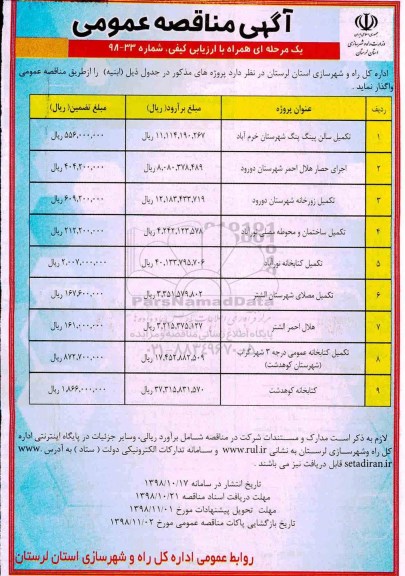 آگهی مناقصه عمومی
یک مرحله ای همراه با ارزیابی کیفی، شماره ۳۳-۹۸
اداره کل راه و شهرسازی استان لرستان در نظر دارد پروژه های مذکور در جدول ذیل (ابنیه) را ازطریق مناقصه عمومی
واگذار نماید .
ردیف عنوان پروژه مبلغ برآورد( ریال) مبلغ تضمین( ریال)
۱ تکمیل سالن پینگ پنگ شهرستان خرم آباد ۱۱,۱۱۴,۱۹۰,۲۶۷ ریال ۵۵۶,۰۰۰,۰۰۰ ریال
۲ اجرای حصار هلال احمر شهرستان دورود ۸,۰۸۰,۳۷۸,۴۸۹ ریال ۴۰۴,۲۰۰,۰۰۰ ریال
۳ تکمیل زورخانه شهرستان دورود ۱۲,۱۸۳,۴۳۳,۷۱۹ ریال ۶۰۹,۲۰۰,۰۰۰ ریال
۴ تکمیل ساختمان و محوطه نورآباد ۴,۲۴۲,۱۲۳,۵۷۸ ریال ۲۱۲,۲۰۰,۰۰۰ ریال
۵ تکمیل کتابخانه نورآباد ۴۰,۱۳۳,۷۹۵,۷۰۶ ریال ۲,۰۰۷,۰۰۰,۰۰۰ ریال
۶ تکمیل مصلای شهرستان الشتر ۳,۳۵۱,۵۷۹,۸۰۲ ریال ۱۶۷,۶۰۰,۰۰۰ ریال
ParsNamadData
۷ هلال احمر الشتر ۳,۲۱۵,۳۷۵,۱۲۷ ریال ۱۶۱,۰۰۰,۰۰۰ ریال
پایگاه اطلاع رسانی مناقصه و مزایده
۸ تکمیل کتابخانه عمومی درجه ۳ شهرگراب ۱۷,۴۵۲,۸۸۲,۵۰۹ ریال ۸۷۲,۷۰۰,۰۰۰ ریال
(شهرستان کوهدشت)
۰۲۱-۸۸۳۴۹۶۷۰-۵
۹ کتابخانه کوهدشت ۳۷,۳۱۵,۸۳۱,۵۷۰ ریال ۱,۸۶۶,۰۰۰,۰۰۰ ریال
لازم به ذکر است مدارک و مستندات شرکت در مناقصه شامل برآورد ریالی، وسایر جزئیات در پایگاه اینترنتی اداره
کل راه وشهرسازی لرستان به نشانی www.rul.ir و سامانه تدارکات الکترونیکی دولت ( ستاد ) به آدرس www.
setadiran.ir قابل دریافت نیز می باشند .
تاریخ انتشار در سامانه ۱۳۹۸/۱۰/۱۷
مهلت دریافت اسناد مناقصه ۱۳۹۸/۱۰/۲۱
مهلت تحویل پیشنهادات مورخ ۱۳۹۸/۱۱/۰۱
تاریخ بازگشایی پاکات مناقصه عمومی مورخ ۱۳۹۸/۱۱/۰۲
روابط عمومی اداره کل راه و شهرسازی استان لرستان